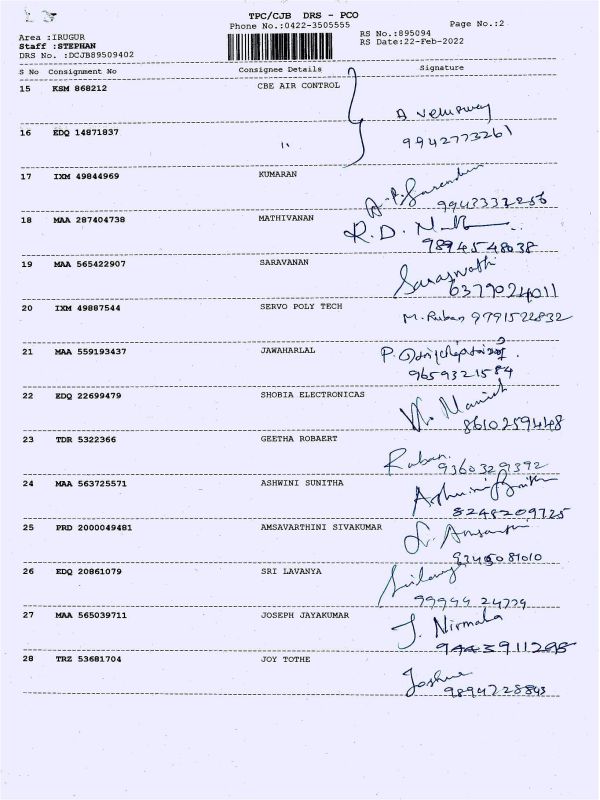 TPC/CJB DRS - PCO
Phone No.:0422-3505555 Page No.:2
Area :IRUGUR RS No.:895094
Staff :STEPHAN RS Date:22-Feb-2022
DRS No. :DCJB89509402
S No Consignment No Consignee Details Signature
15 KSM 868212 CBE AIR CONTROL
A Velusway
16 EDQ 14871837 " 9942773261
17 IXM 49844969 KUMARAN
9943333256
18 MAA 287404738 MATHIVANAN R. D.
9894548038
19 MAA 565422907 SARAVANAN Saraswathi
6379024011
20 IXM 49887544 SERVO POLY TECH M. Ruban 9791522832
21 MAA 559193437 JAWAHARLAL P.
9659321584
22 EDQ 22699479 SHOBIA ELECTRONICAS
8610259448
23 TDR 5322366 GEETHA ROBAERT Ruban.
9360329392
24 MAA 563725571 ASHWINI SUNITHA Ashwini
8248209725
25 PRD 2000049481 AMSAVARTHINI SIVAKUMAR
9345081010
26 EDQ 20861079 SRI LAVANYA
99944 24779
27 MAA 565039711 JOSEPH JAYAKUMAR J. Nirmala
9443911298
28 TRZ 53681704 JOY TOTHE Joshua
9894728843